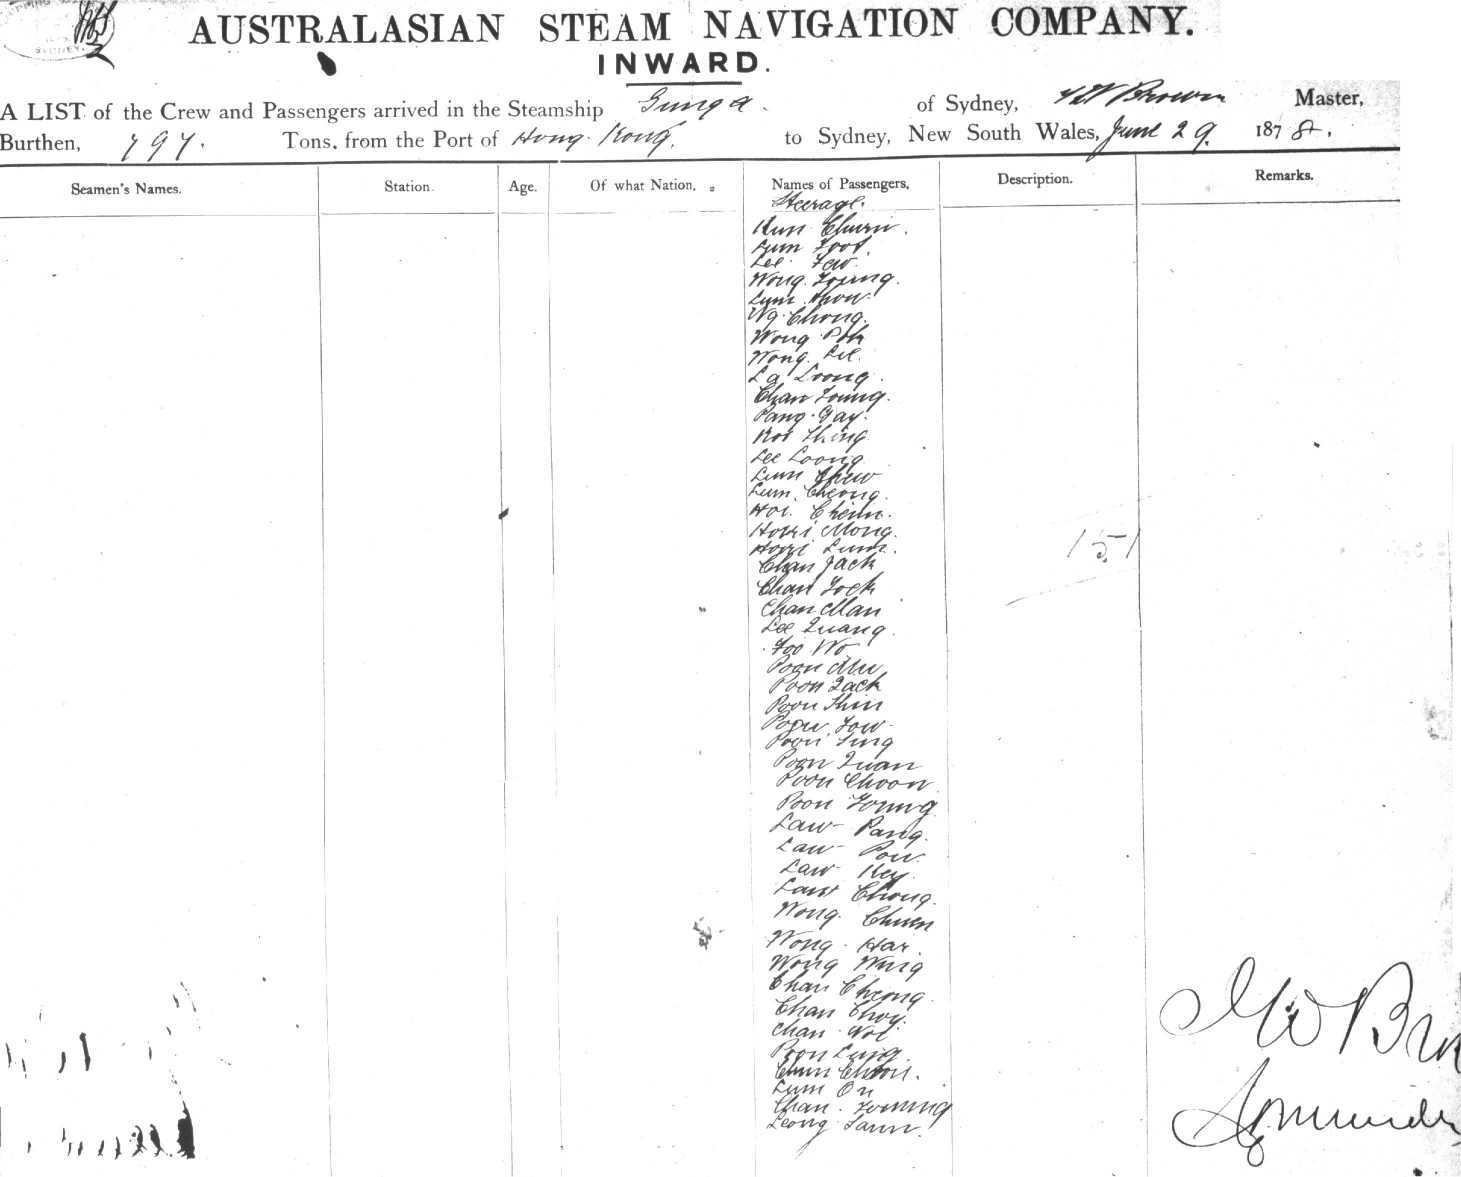 SYDNEY
AUSTRALASIAN STEAM NAVIGATION COMPANY.
INWARD.
A LIST of the Crew and Passengers arrived in the Steamship Gunga. of Sydney, Brown Master,
Burthen, 797. Tons, from the Port of Hong Kong. to Sydney, New South Wales, June 29. 1878.
Seamen's Names. Station. Age. Of what Nation. Names of Passengers, Description. Remarks.
Steerage.
Churn.
Lum Foot.
Lee
Wong Young.
Lum
Ng Chong.
Wong
Wong Lee.
La Loong.
Chan Young.
Pang Gay.
Koi Shing
Lee Loong
Lum Chew
Lum Cheong.
Hoi
Mong.
Lum.
Chan Jack
Chan
Chan Man
Lee Quang.
Foo Wo
Poon Mu
Poon
Poon Shin
Poon
Poon
Poon Quan
Poon Choon
Poon Young
Law Pang.
Law Pow.
Law Key.
Law Chong.
Wong Chuen
Wong Har.
Wong Wing
Chan Cheong.
Chan Choy.
Chan
Poon Lung.
Choon.
Lum On
Chan
Leong
151